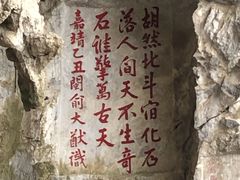 胡然北斗宿化石
落人间天不生奇
石谁擎万古天
嘉靖乙丑闽俞大猷识